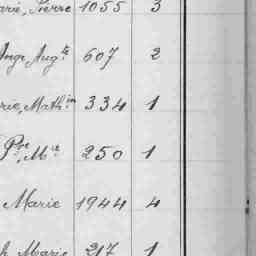 arie, Pierre 1055 3
Ange, Aug.te 607 2
rie, Math.in 334 1
P.re, M.ie 250 1
Marie 1944 4
h Marie 217 1